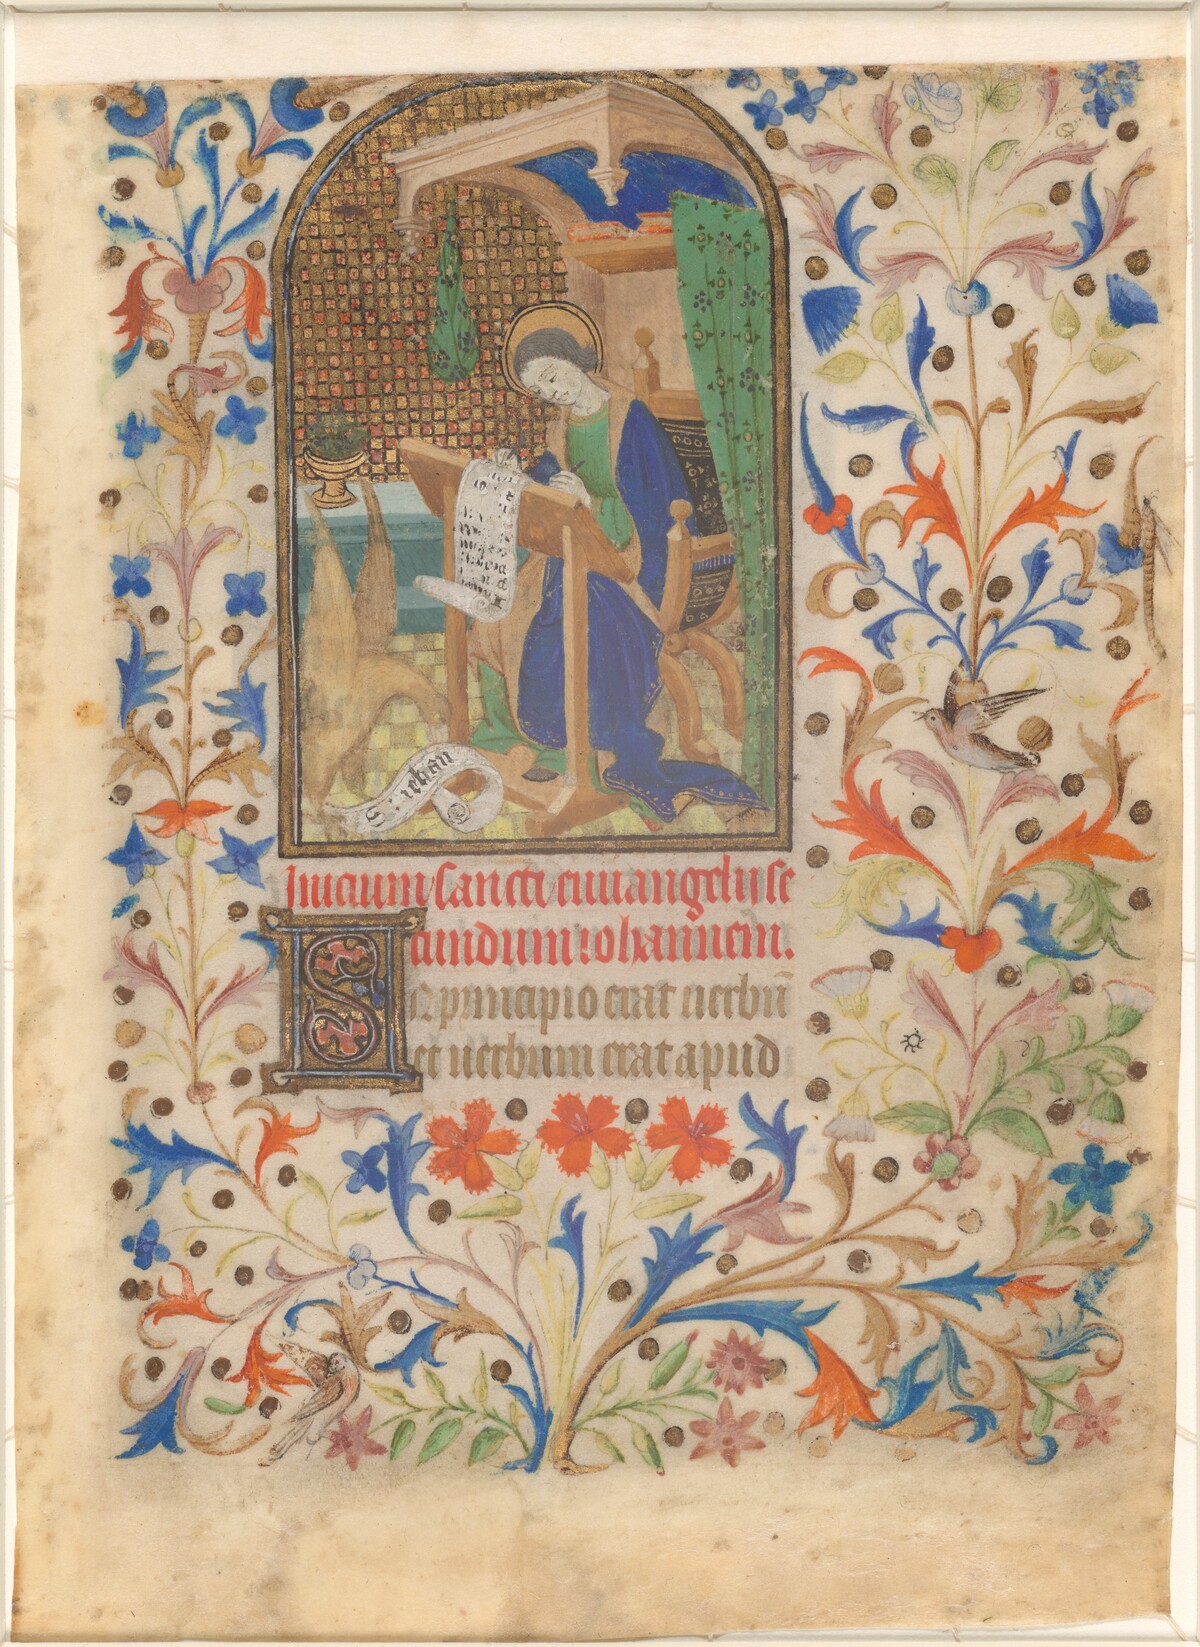 S. iehan
Inicium sancti euuangelii se
cundum iohannem.
In principio erat uerbū
et uerbum erat apud